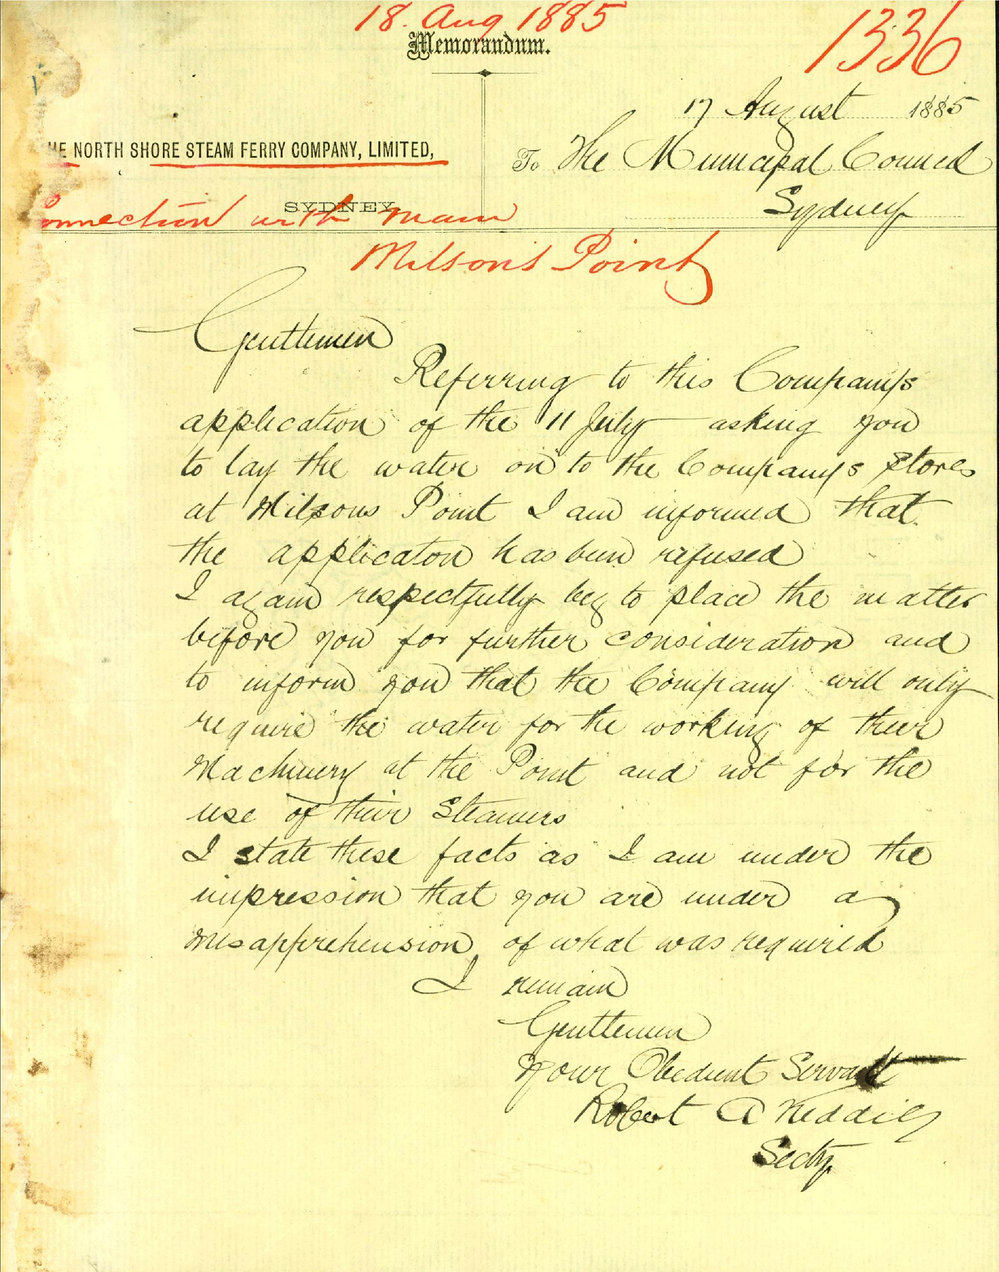 18. Aug 1885
Memorandum.
1336
17 August 1885
THE NORTH SHORE STEAM FERRY COMPANY, LIMITED,
To The Municipal Council
SYDNEY
Sydney
Connection with main
Milson's Point
Gentlemen
Referring to this Company's
application of the 11 July asking you
to lay the water on to the Company's stores
at Milsons Point I am informed that
the applicaton has been refused
I again respectfully beg to place the matter
before you for further consideration and
to inform you that the Company will only
require the water for the working of their
Machinery at the Point and not for the
use of their Steamers
I state these facts as I am under the
impression that you are under a
misapprehension of what was required
I remain
Gentlemen
Your Obedient Servant
Robert A Keddie
Secty